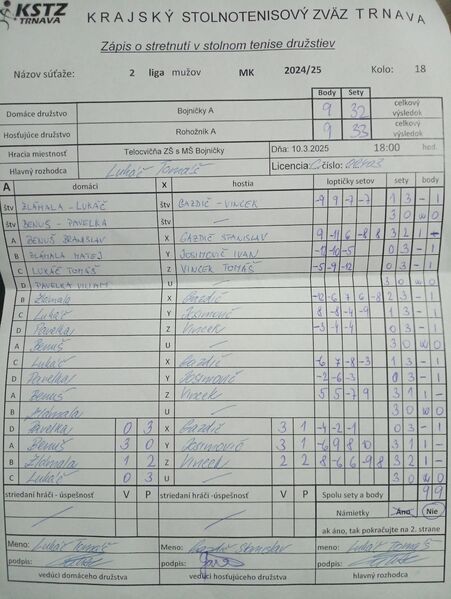 KSTZ TRNAVA
KRAJSKÝ STOLNOTENISOVÝ ZVÄZ TRNAVA
Zápis o stretnutí v stolnom tenise družstiev
Názov súťaže: 2 liga mužov MK 2024/25 Kolo: 18
Body Sety
Domáce družstvo Bojničky A 9 32 celkový výsledok
Hosťujúce družstvo Rohožník A 9 33 celkový výsledok
Hracia miestnosť Telocvičňa ZŠ s MŠ Bojničky Dňa: 10.3.2025 18:00 hod.
Hlavný rozhodca Lukáč Tomáš Licencia: číslo:
A domáci X hostia loptičky setov sety body
štv ZLÁMALA - LUKÁČ štv GAZDIČ - VINCEK -9 9 -7 -7 1 3 - 1
štv BENUŠ - PAVELKA štv 3 0 W O
A BENUŠ BRANISLAV X GAZDIČ STANISLAV 9 -11 6 -8 8 3 2 1 -
B ZLÁMALA MATEJ Y JOSIMOVIČ IVAN -12 -10 -5 0 3 - 1
C LUKÁČ TOMÁŠ Z VINCEK TOMÁŠ -5 -9 -12 0 3 - 1
D PAVELKA VILIAM U 3 0 W O
B Zlámala X Gazdič -12 -6 7 6 -8 2 3 - 1
C Lukáč Y Josimovič 8 -8 -4 -9 1 3 - 1
D Pavelka Z Vincek -3 -4 -4 0 3 - 1
A Benuš U 3 0 W O
C Lukáč X Gazdič -6 7 -8 -3 1 3 - 1
D Pavelka Y Josimovič -2 -6 -3 0 3 - 1
A Benuš Z Vincek 5 5 -7 9 3 1 1
B Zlámala U 3 0 W O
D Pavelka 0 3 X Gazdič 3 1 -4 -2 -1 0 3 - 1
A Benuš 3 0 Y Josimovič 3 1 -6 9 8 10 3 1 1 -
B Zlámala 1 2 Z Vincek 2 2 8 -6 6 -9 8 3 2 1 -
C Lukáč 0 3 U 3 0 W O
striedaní hráči - úspešnosť V P striedaní hráči - úspešnosť V P Spolu sety a body 9 9
Námietky Áno Nie
ak áno, tak pokračujte na 2. strane
Meno: Lukáč Tomáš Meno: Gazdič Stanislav meno: Lukáč Tomáš
podpis: podpis: podpis:
vedúci domáceho družstva vedúci hosťujúceho družstva hlavný rozhodca